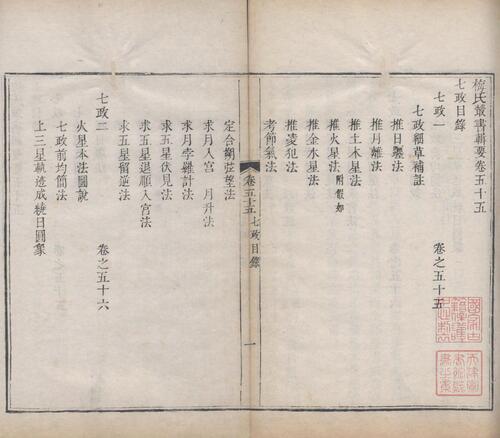 梅氏叢書輯要卷五十五
七政目錄
七政一 卷之五十五
七政細草補註
推日躔法
推月離法
推土木星法
推火星法 附假如
推金水星法
推凌犯法
考節氣法
卷五十五 七政目錄 一
定合朔弦望法
求月入宮 月升法
求月孛羅計法
求五星伏見法
求五星退順入宮法
求五星留逆法
七政二 卷之五十六
火星本法圖說
七政前均簡法
上三星軌迹成繞日圓象